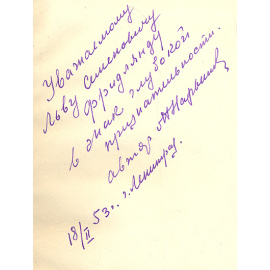 Уважаемому
Льву Семеновичу
Фридлянду
в знак глубокой
признательности.
автор
18/II 53 г. г. Ленинград.